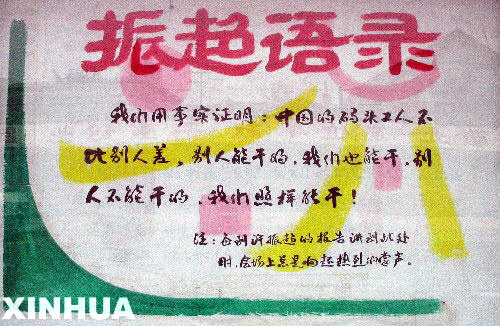 振超语录
我们用事实证明：中国的码头工人不
比别人差，别人能干的，我们也能干，别
人不能干的，我们照样能干！
注：每到许振超的报告讲到此处
时，会场上总是响起热烈的掌声。
XINHUA